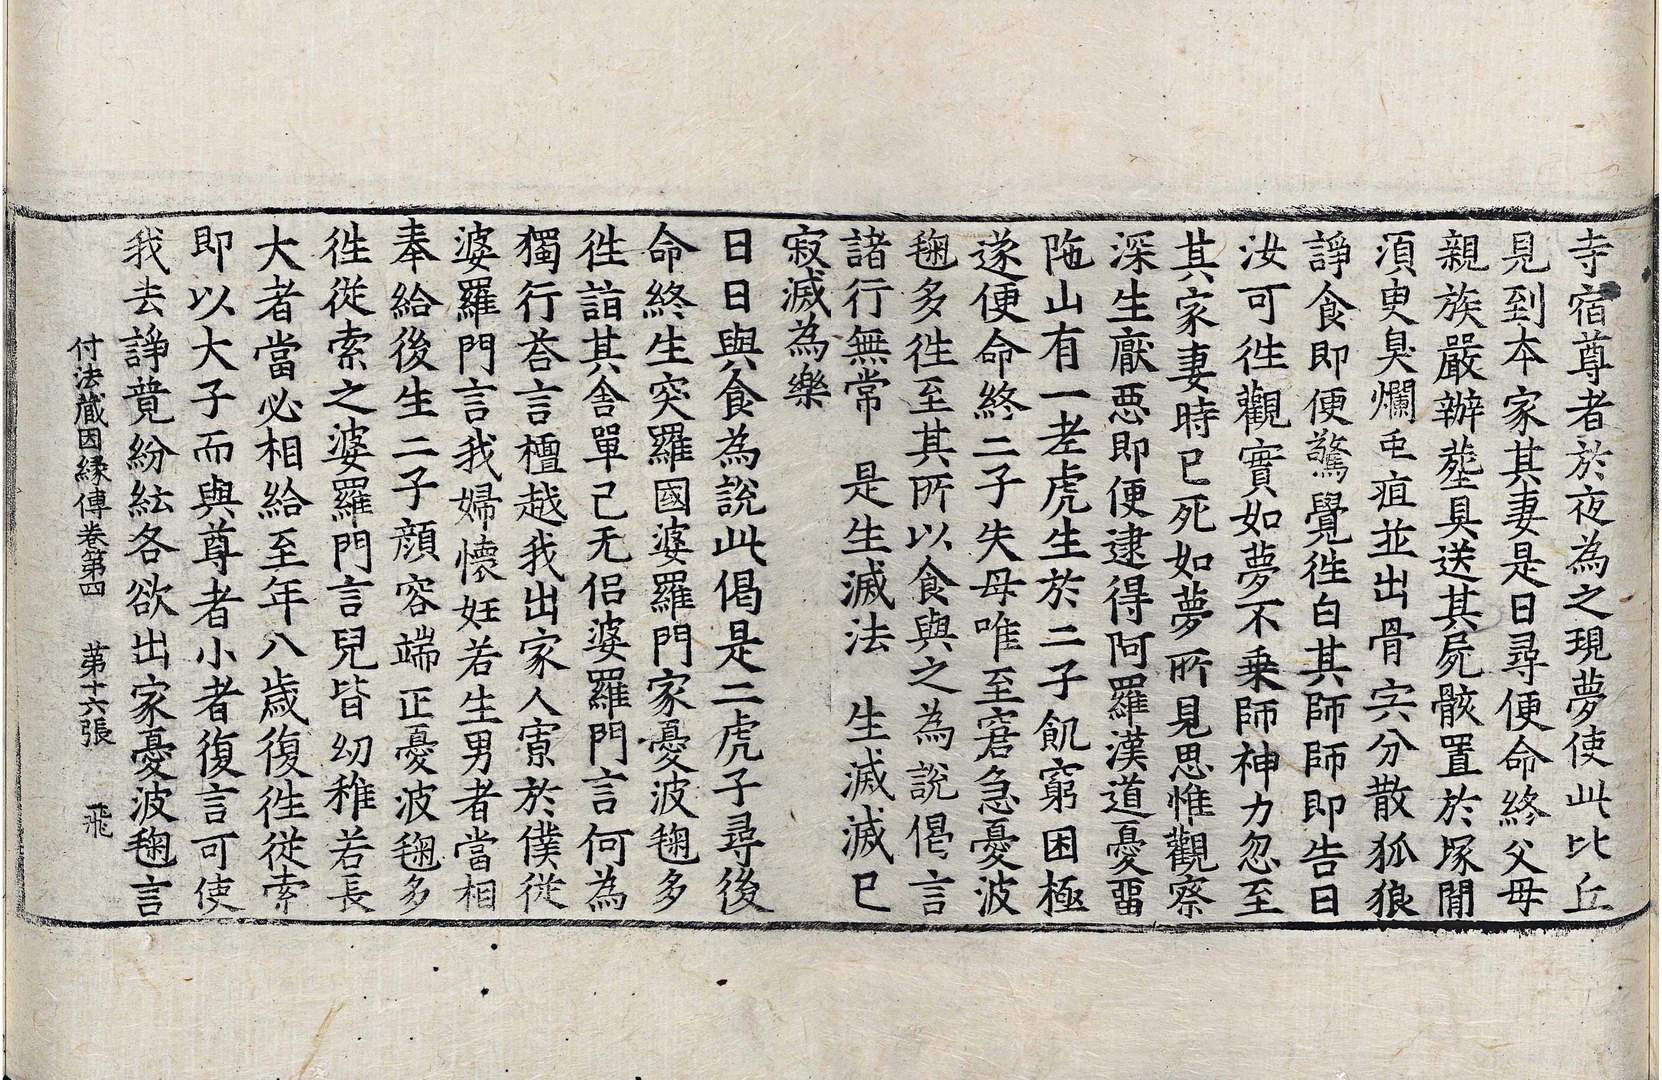 寺宿尊者於夜為之現夢使此比丘
見到本家其妻是日尋便命終父母
親族嚴辦塟具送其屍骸置於塚閒
須臾臭爛虫疽並出骨宍分散狐狼
諍食即便驚覺徃白其師師即告曰
汝可徃觀實如夢不乗師神力忽至
其家妻時已死如夢所見思惟觀察
深生厭惡即便逮得阿羅漢道憂畱
陁山有一老虎生於二子飢窮困極
遂便命終二子失母唯至窘急憂波
毱多徃至其所以食與之為說偈言
諸行無常　是生滅法　生滅滅已
寂滅為樂
日日與食為說此偈是二虎子尋後
命終生突羅國婆羅門家憂波毱多
徃詣其舍單己无侣婆羅門言何為
獨行荅言檀越我出家人寡於僕從
婆羅門言我婦懷妊若生男者當相
奉給後生二子顔容端正憂波毱多
徃從索之婆羅門言兒皆幼稚若長
大者當必相給至年八歲復徃從索
即以大子而與尊者小者復言可使
我去諍競紛紜各欲出家憂波毱言
付法蔵因縁傳卷第四　第十六張　飛